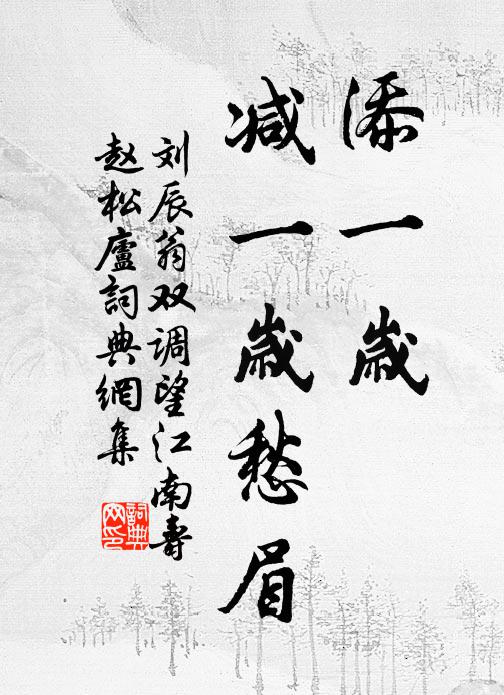 添一歲
减一歲愁眉
刘辰翁双调望江南寿
赵松廬詞典網集
詞典
网印